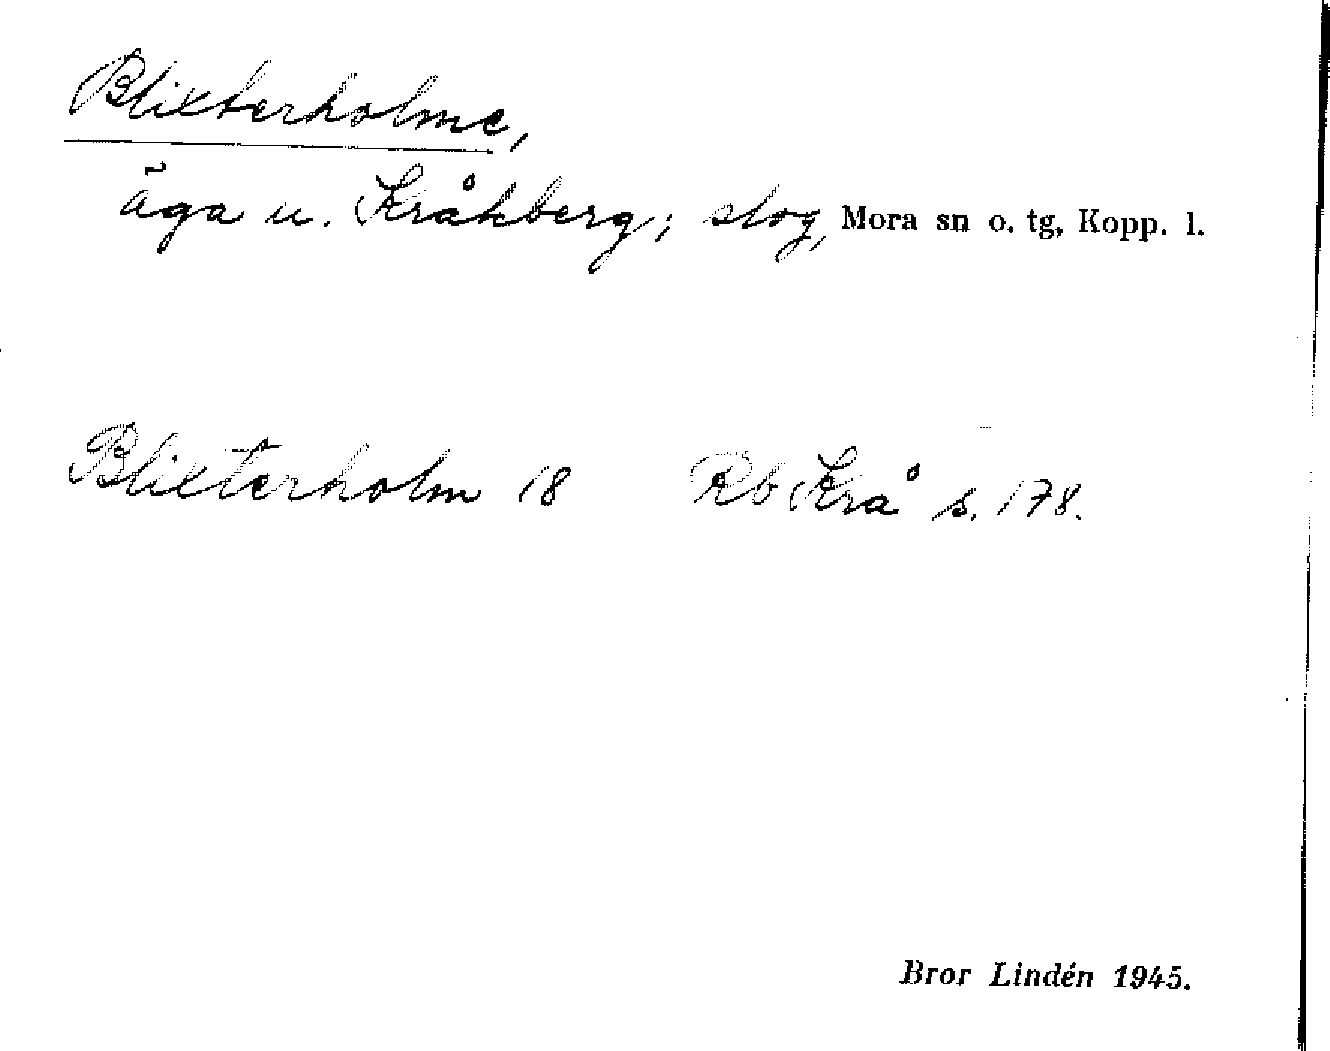 Blixterholme,
äga u. Kråkberg; slog, Mora sn o. tg, Kopp. l.
Blixterholm 18 Rb Krå s. 178.
Bror Lindén 1945.